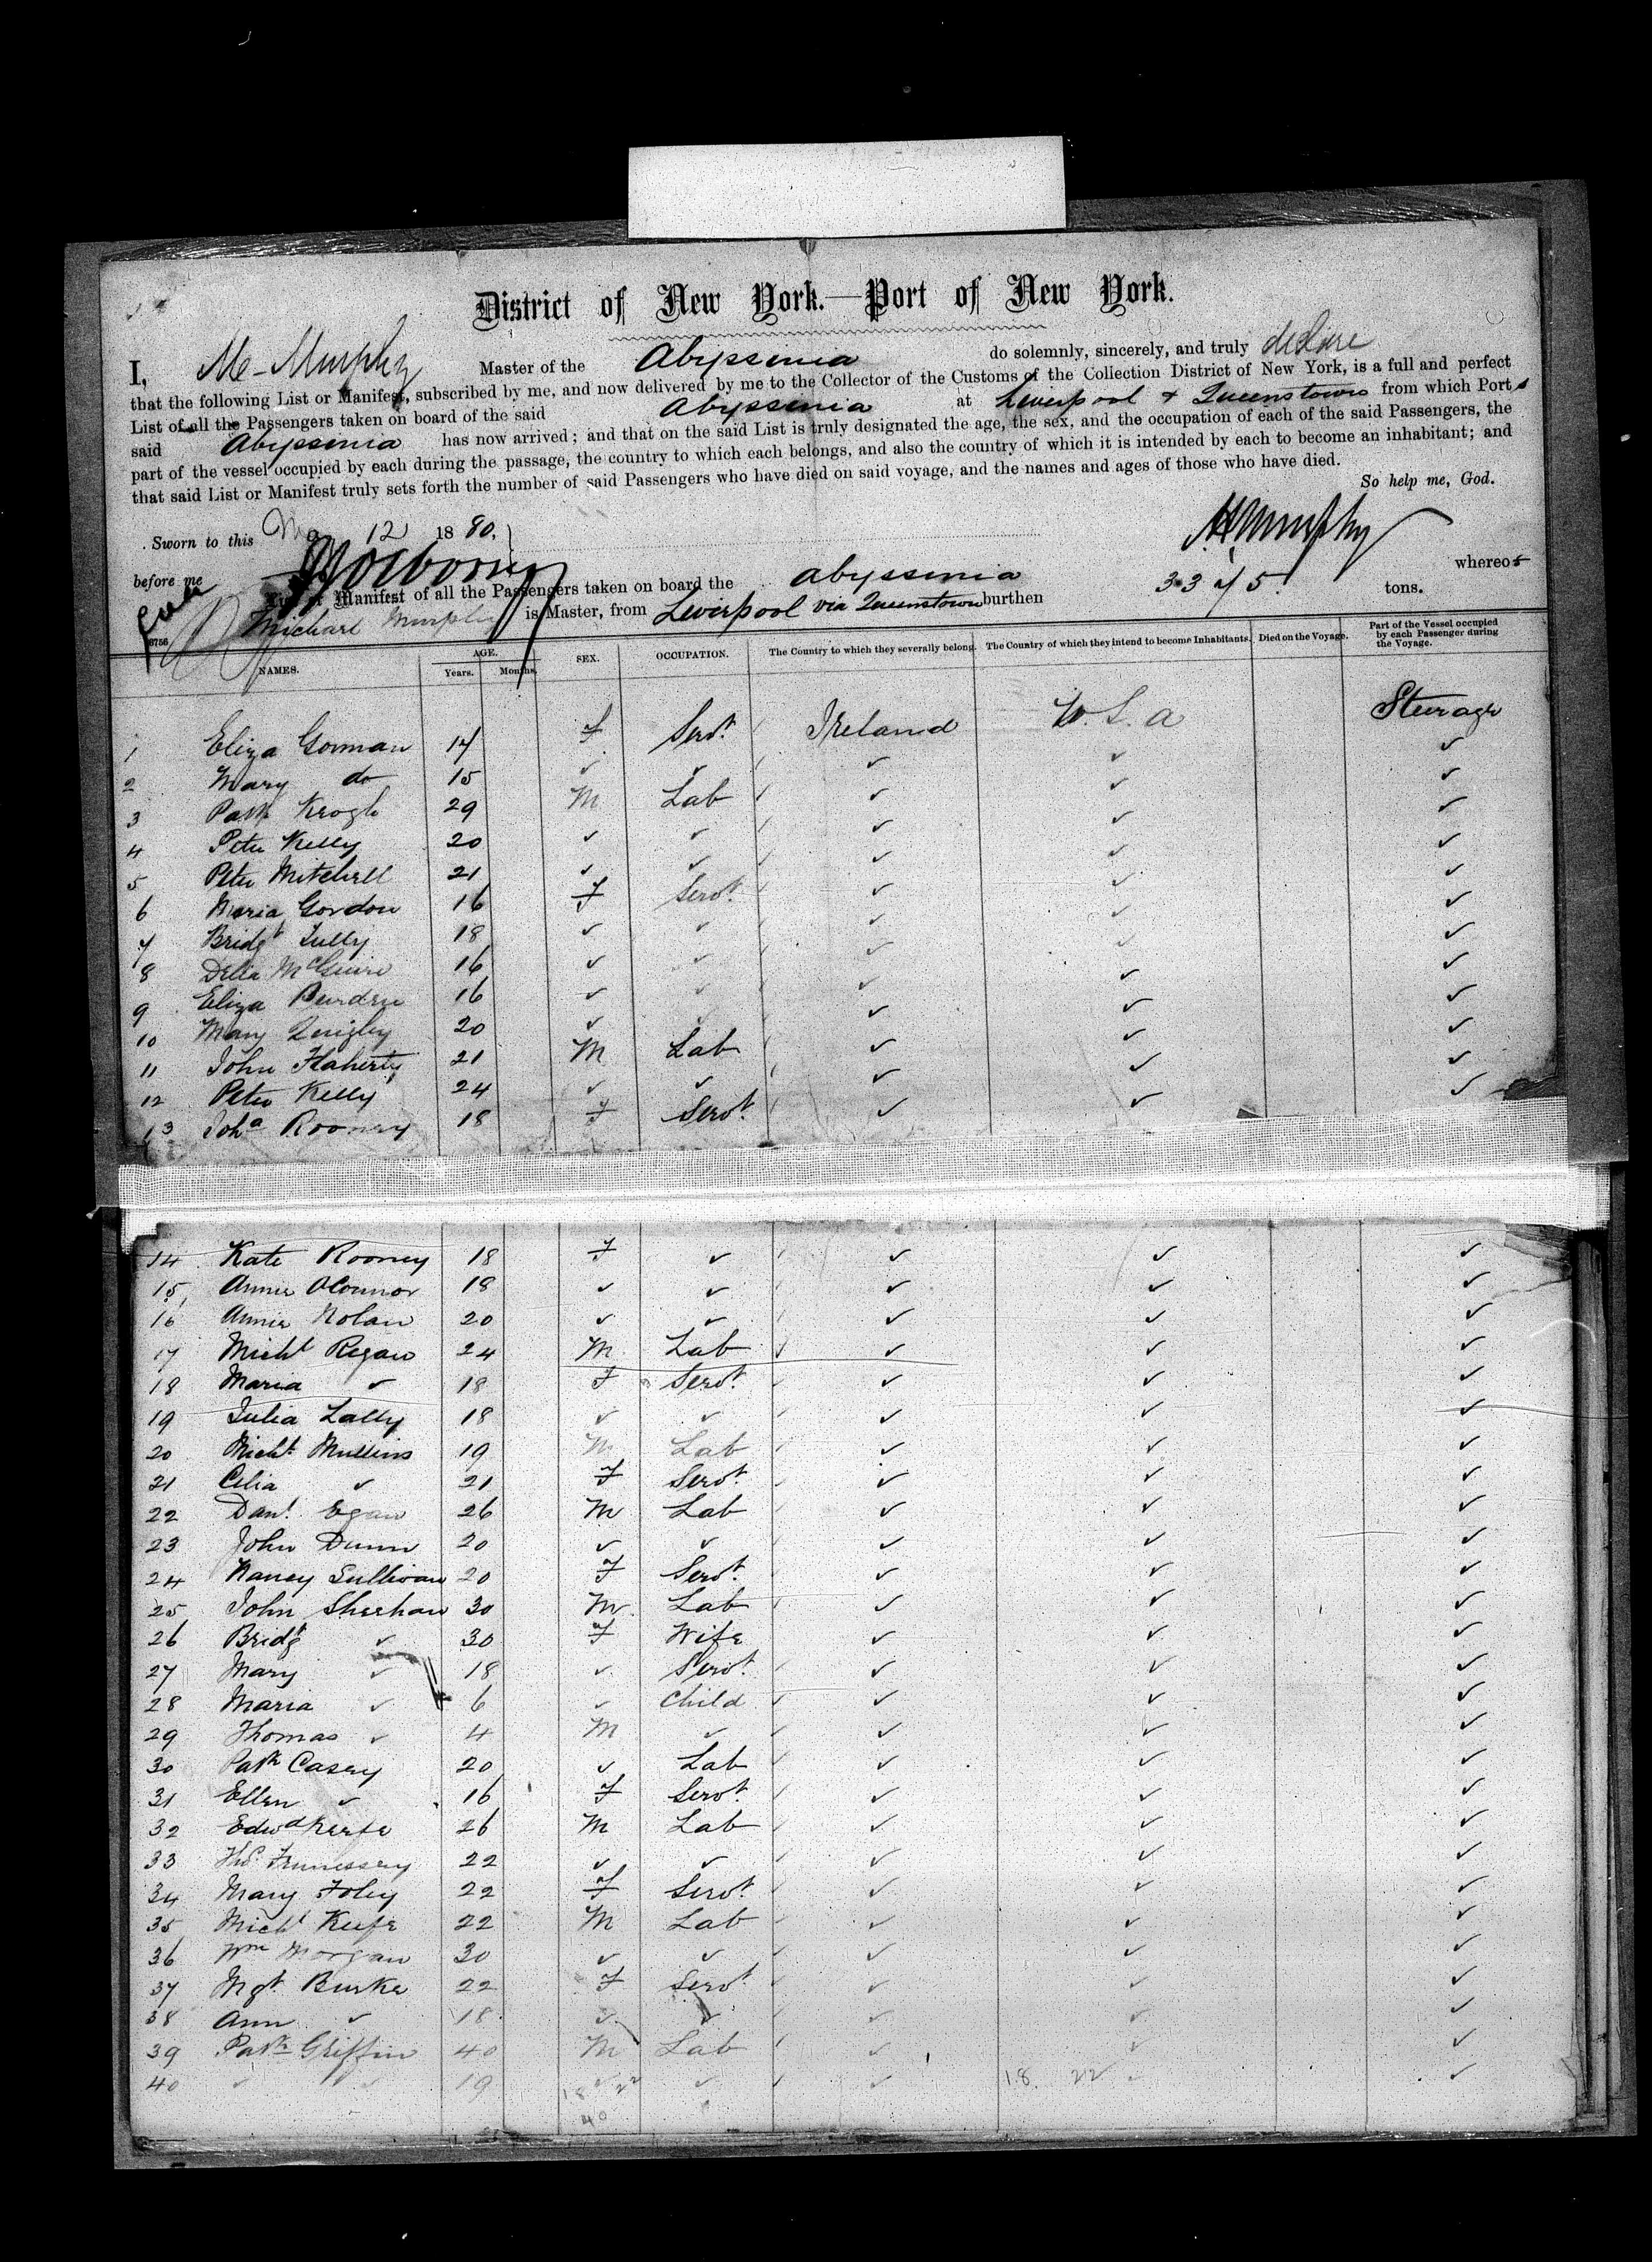 District of New York.—Port of New York.
I, Mc Murphy Master of the Abyssinia do solemnly, sincerely, and truly declare
that the following List or Manifest, subscribed by me, and now delivered by me to the Collector of the Customs of the Collection District of New York, is a full and perfect
List of all the Passengers taken on board of the said Abyssinia at Liverpool + Queenstown from which Ports
said Abyssinia has now arrived; and that on the said List is truly designated the age, the sex, and the occupation of each of the said Passengers, the
part of the vessel occupied by each during the passage, the country to which each belongs, and also the country of which it is intended by each to become an inhabitant; and
that said List or Manifest truly sets forth the number of said Passengers who have died on said voyage, and the names and ages of those who have died.
So help me, God.
Sworn to this 12 1880,
Murphy
before me
Manifest of all the Passengers taken on board the Abyssinia whereof
Michael Murphy is Master, from Liverpool via Queenstown burthen tons.
6756
NAMES. AGE. Years. Months. SEX. OCCUPATION. The Country to which they severally belong. The Country of which they intend to become Inhabitants. Died on the Voyage. Part of the Vessel occupied by each Passenger during the Voyage.
1 Eliza Gorman 17 F Servt Ireland U.S.A Steerage
2 Mary do 15 ✓ ✓ ✓ ✓ ✓
3 Patk Keogh 29 M Lab ✓ ✓ ✓
4 Peter Kelly 20 ✓ ✓ ✓ ✓ ✓
5 Peter Mitchell 21 ✓ ✓ ✓ ✓ ✓
6 Maria Gordon 16 F Servt ✓ ✓ ✓
7 Bridgt Tully 18 ✓ ✓ ✓ ✓ ✓
8 Delia McGuire 16 ✓ ✓ ✓ ✓ ✓
9 Eliza Burden 16 ✓ ✓ ✓ ✓ ✓
10 Mary Quigley 20 ✓ ✓ ✓ ✓ ✓
11 John Flaherty 21 M Lab ✓ ✓ ✓
12 Peter Kelly 24 ✓ ✓ ✓ ✓ ✓
13 Joha Rooney 18 F Servt ✓ ✓ ✓
14 Kate Rooney 18 F ✓ ✓ ✓ ✓
15 Annie OConnor 18 ✓ ✓ ✓ ✓ ✓
16 Annie Nolan 20 ✓ ✓ ✓ ✓ ✓
17 Michl Regan 24 M Lab ✓ ✓ ✓
18 Maria ✓ 18 F Servt ✓ ✓ ✓
19 Julia Lally 18 ✓ ✓ ✓ ✓ ✓
20 Michl Mullins 19 M Lab ✓ ✓ ✓
21 Celia ✓ 21 F Servt ✓ ✓ ✓
22 Danl Egan 26 M Lab ✓ ✓ ✓
23 John Dunn 20 ✓ ✓ ✓ ✓ ✓
24 Nancy Sullivan 20 F Servt ✓ ✓ ✓
25 John Sheehan 30 M Lab ✓ ✓ ✓
26 Bridgt ✓ 30 F Wife ✓ ✓ ✓
27 Mary ✓ 18 ✓ Servt ✓ ✓ ✓
28 Maria ✓ 6 ✓ Child ✓ ✓ ✓
29 Thomas ✓ 4 M ✓ ✓ ✓ ✓
30 Patk Casey 20 ✓ Lab ✓ ✓ ✓
31 Ellen ✓ 16 F Servt ✓ ✓ ✓
32 Edwd Keefe 26 M Lab ✓ ✓ ✓
33 22 ✓ ✓ ✓ ✓ ✓
34 Mary Foley 22 F Servt ✓ ✓ ✓
35 Michl Keefe 22 M Lab ✓ ✓ ✓
36 Wm Morgan 30 ✓ ✓ ✓ ✓ ✓
37 Mgt Burke 22 F Servt ✓ ✓ ✓
38 Ann ✓ 18 ✓ ✓ ✓ ✓ ✓
39 Patk Griffin 40 M Lab ✓ ✓ ✓
40 ✓ ✓ 19 ✓ ✓ ✓ ✓ ✓
18 22 18 22
40